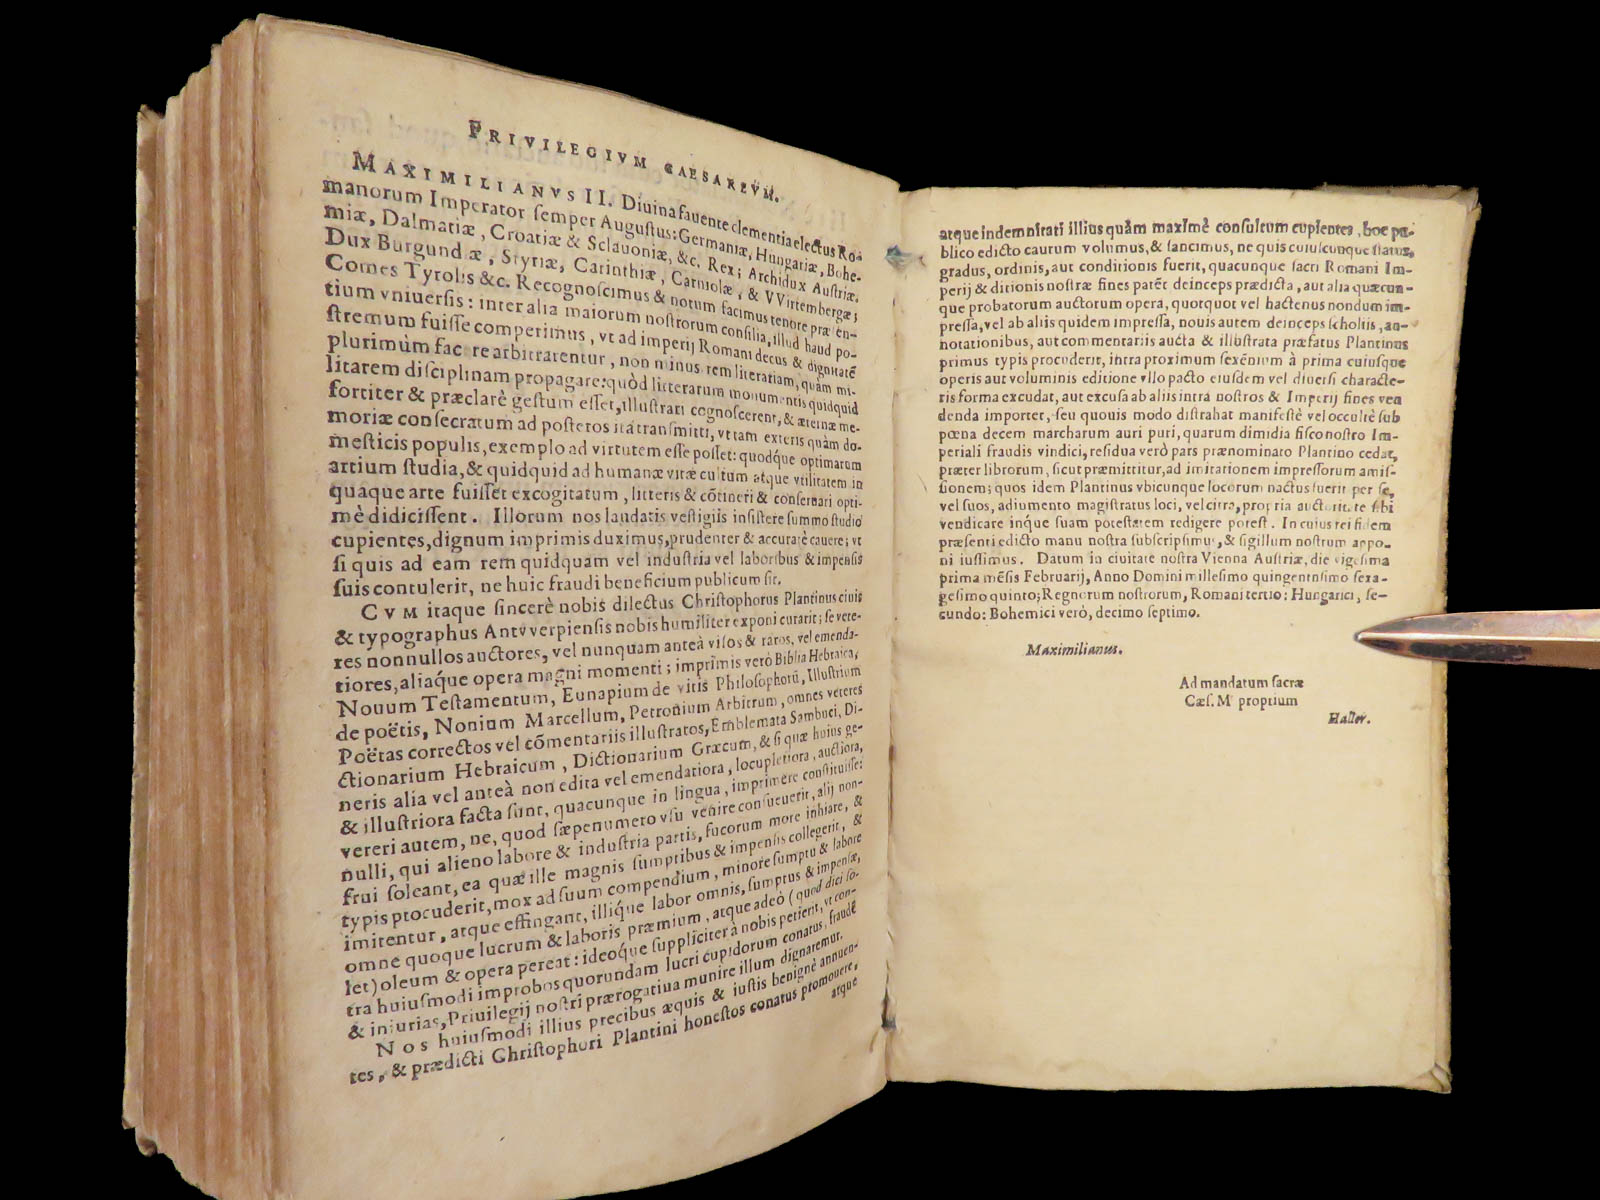 PRIVILEGIVM CAESAREVM.
MAXIMILIANVS II. Diuina fauente clementia electus Ro-
manorum Imperator semper Augustus: Germaniæ, Hungariæ, Bohe-
miæ, Dalmatiæ, Croatiæ & Sclauoniæ, &c. Rex; Archidux Austriæ,
Dux Burgundiæ, Styriæ, Carinthiæ, Carniolæ, & VVirtembergæ;
Comes Tyrolis &c. Recognoscimus & notum facimus tenore præsen-
tium vniuersis: inter alia maiorum nostrorum consilia, illud haud po-
stremum fuisse comperimus, vt ad imperij Romani decus & dignitatē
plurimùm facere arbitrarentur, non minus rem literariam, quàm mi-
litarem disciplinam propagare: quòd litterarum monumentis quidquid
fortiter & præclarè gestum esset, illustrari cognoscerent, & æternæ me-
moriæ consecratum ad posteros ita transmitti, vt tam exteris quàm do-
mesticis populis, exemplo ad virtutem esse posset: quodq́ue optimarum
artium studia, & quidquid ad humanæ vitæ cultum atque vtilitatem in
quaque arte fuisset excogitatum, litteris & cōtineri & conseruari opti-
mè didicissent. Illorum nos laudatis vestigiis insistere summo studio
cupientes, dignum imprimis duximus, prudenter & accuratè cauere; vt
si quis ad eam rem quidquam vel industria vel laboribus & impensis
suis contulerit, ne huic fraudi beneficium publicum sit.
CVM itaque sincerè nobis dilectus Christophorus Plantinus ciuis
& typographus Antvverpiensis nobis humiliter exponi curarit; se vete-
res nonnullos auctores, vel nunquam anteà visos & raros, vel emenda-
tiores, aliaq́ue opera magni momenti; imprimis verò Biblia Hebraica,
Nouum Testamentum, Eunapium de vitis Philosophorū, Illustrium
de poëtis, Nonium Marcellum, Petronium Arbitrum, omnes veteres
Poëtas correctos vel cōmentariis illustratos, Emblemata Sambuci, Di-
ctionarium Hebraicum, Dictionarium Græcum, & si quæ huius ge-
neris alia vel anteà non edita vel emendatiora, locupletiora, auctiora,
& illustriora facta sunt, quacunque in lingua, imprimere constituisse:
vereri autem, ne, quod sæpenumero vsu venire consueuerit, alij non-
nulli, qui alieno labore & industria partis, fucorum more inhiare, &
frui soleant, ea quæ ille magnis sumptibus & impensis collegerit, &
typis procuderit, mox ad suum compendium, minore sumptu & labore
imitentur, atque effingant, illiq́ue labor omnis, sumptus & impensæ,
omne quoque lucrum & laboris præmium, atque adeò (quod dici so-
let) oleum & opera pereat: ideoq́ue suppliciter à nobis petierit, vt con-
tra huiusmodi improbos quorundam lucri cupidorum conatus, fraudē
& iniurias, Priuilegij nostri prærogatiua munire illum dignaremur.
Nos huiusmodi illius precibus æquis & iustis benignè annuen-
tes, & prædicti Christophori Plantini honestos conatus promouere,
atque
atque indemnitati illius quàm maximè consultum cupientes, hoc pu-
blico edicto cautum volumus, & sancimus, ne quis cuiuscunque status,
gradus, ordinis, aut conditionis fuerit, quacunque sacri Romani Im-
perij & ditionis nostræ fines patēt deinceps prædicta, aut alia quæcun-
que probatorum auctorum opera, quotquot vel hactenus nondum im-
pressa, vel ab aliis quidem impressa, nouis autem deinceps scholiis, an-
notationibus, aut commentariis aucta & illustrata præfatus Plantinus
primus typis procuderit, intra proximum sexēnium à prima cuiusque
operis aut voluminis editione vllo pacto eiusdem vel diuersi characte-
ris forma excudat, aut excusa ab aliis intra nostros & Imperij fines ven
denda importet, seu quouis modo distrahat manifestè vel occultè sub
pœna decem marcharum auri puri, quarum dimidia fisco nostro Im-
periali fraudis vindici, residua verò pars prænominato Plantino cedat,
præter librorum, sicut præmittitur, ad imitationem impressorum amis-
sionem; quos idem Plantinus vbicunque locorum nactus fuerit per se,
vel suos, adiumento magistratus loci, vel citra, propria auctoritate sibi
vendicare inq́ue suam potestatem redigere potest. In cuius rei fidem
præsenti edicto manu nostra subscripsimus, & sigillum nostrum appo-
ni iussimus. Datum in ciuitate nostra Vienna Austriæ, die vigesima
prima mēsis Februarij, Anno Domini millesimo quingentesimo sexa-
gesimo quinto; Regnorum nostrorum, Romani tertio: Hungarici, se-
cundo: Bohemici verò, decimo septimo.
Maximilianus.
Ad mandatum sacræ
Cæs. Mᵗⁱˢ proprium
Haller.